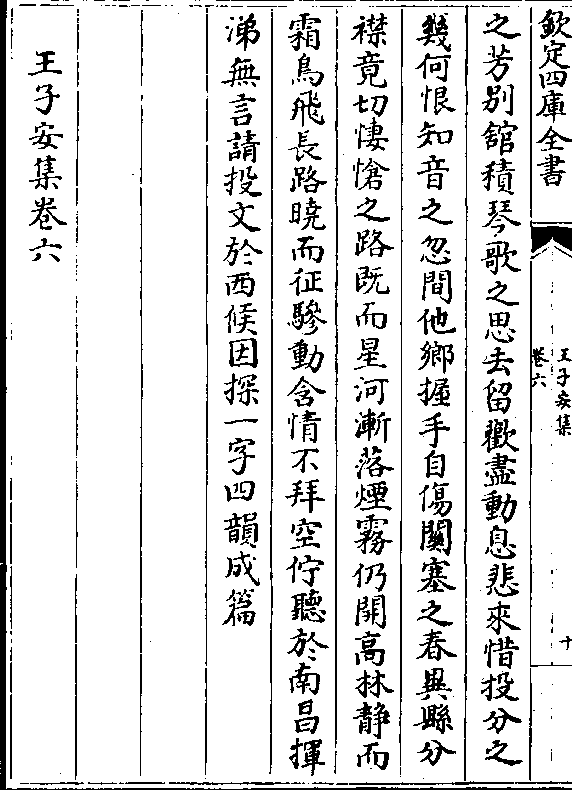 欽定四庫全書
王子安集
卷六
十
之芳别舘積琴歌之思去留歡盡動息悲來惜投分之
幾何恨知音之忽間他鄉握手自傷關塞之春異縣分
襟竟切悽愴之路既而星河漸落煙霧仍開高林靜而
霜鳥飛長路曉而征驂動含情不拜空佇聽於南昌揮
涕無言請投文於西候因探一字四韻成篇
王子安集卷六